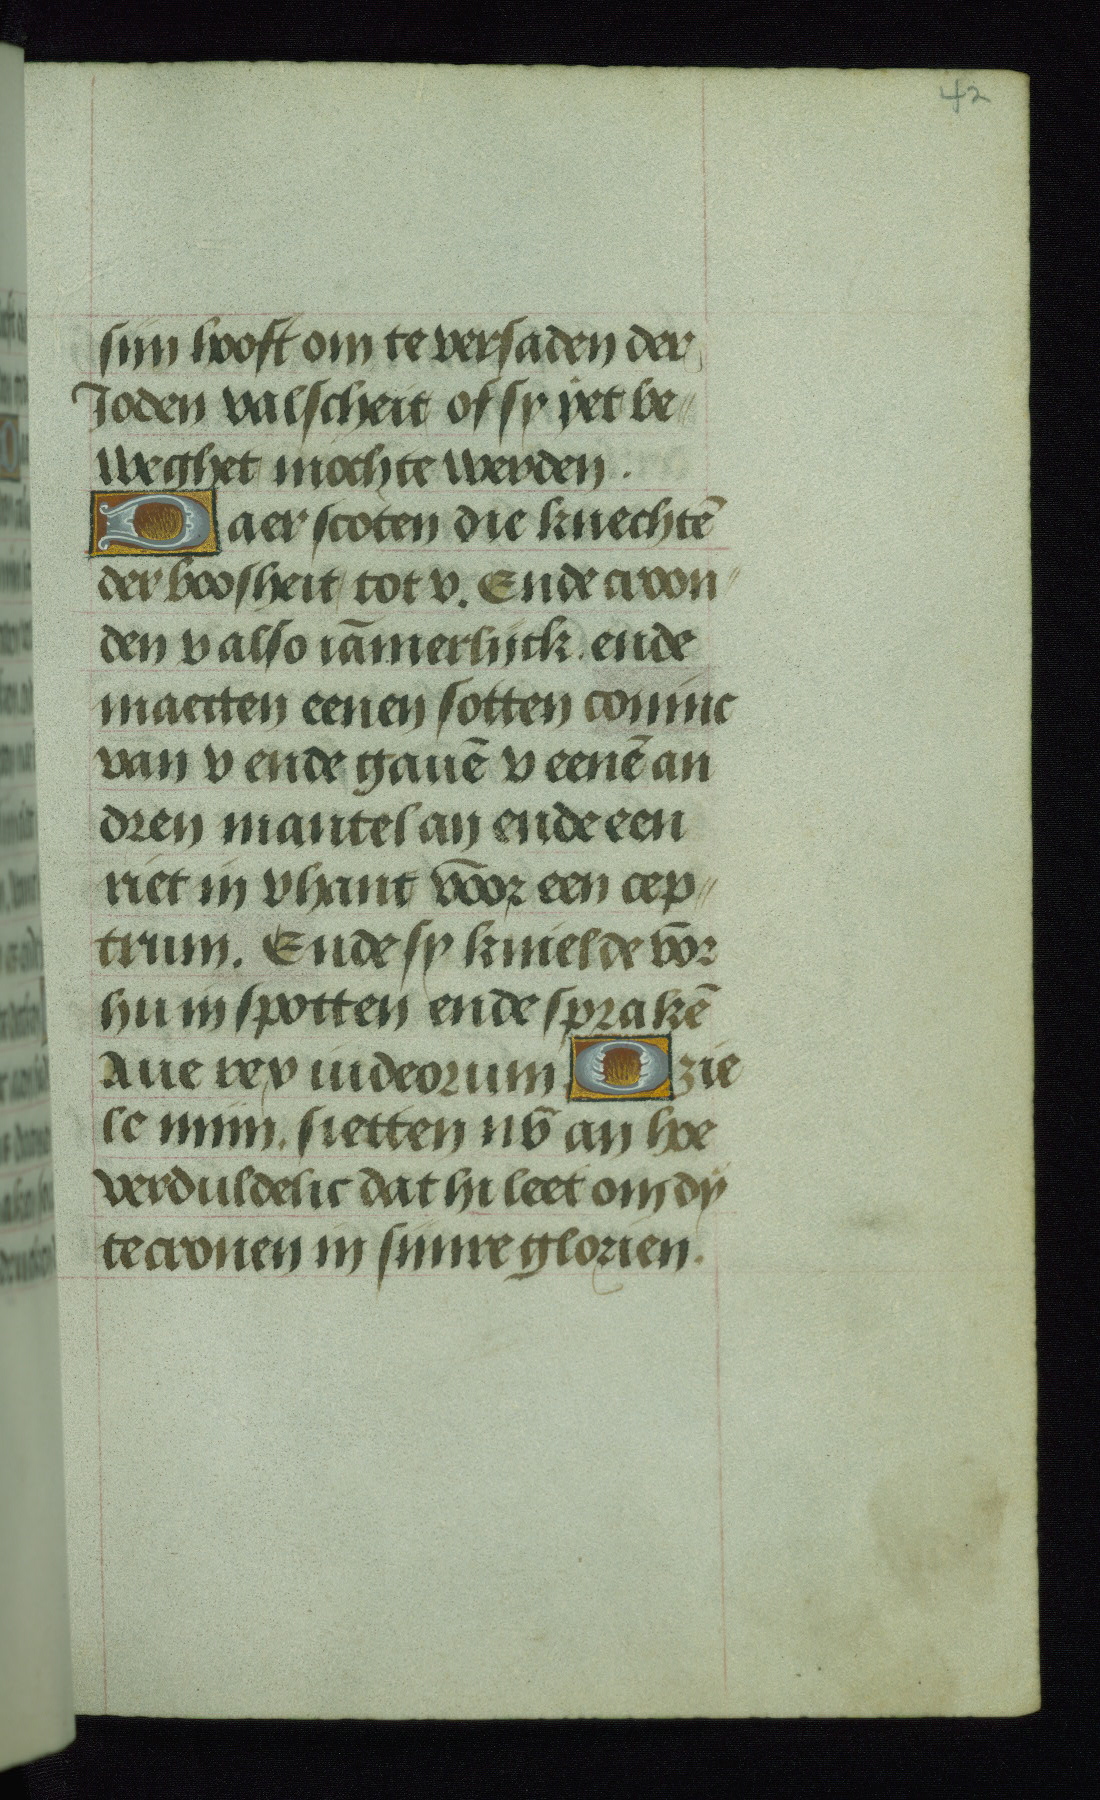 42
siin hooft om te versaden der
Joden valscheit of sy yet be〃
weghet mochte werden.
Daer scoten die knechtē
der boosheit tot v. Ende croon〃
den v also iāmerlijck. ende
maecten eenen sotten coninc
van v ende gauē v eenē an
dren mantel an ende een
riet in v hant vōor een cep〃
trum. Ende sy knielde vōr
hu in spotten ende sprakē
Aue rex iudeorum. O zie
le mijn. sietten nv̄ an hoe
verduldelic dat hi leet om dy
te cronen in sijnre glorien.